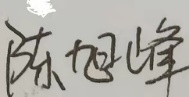 陈旭峰